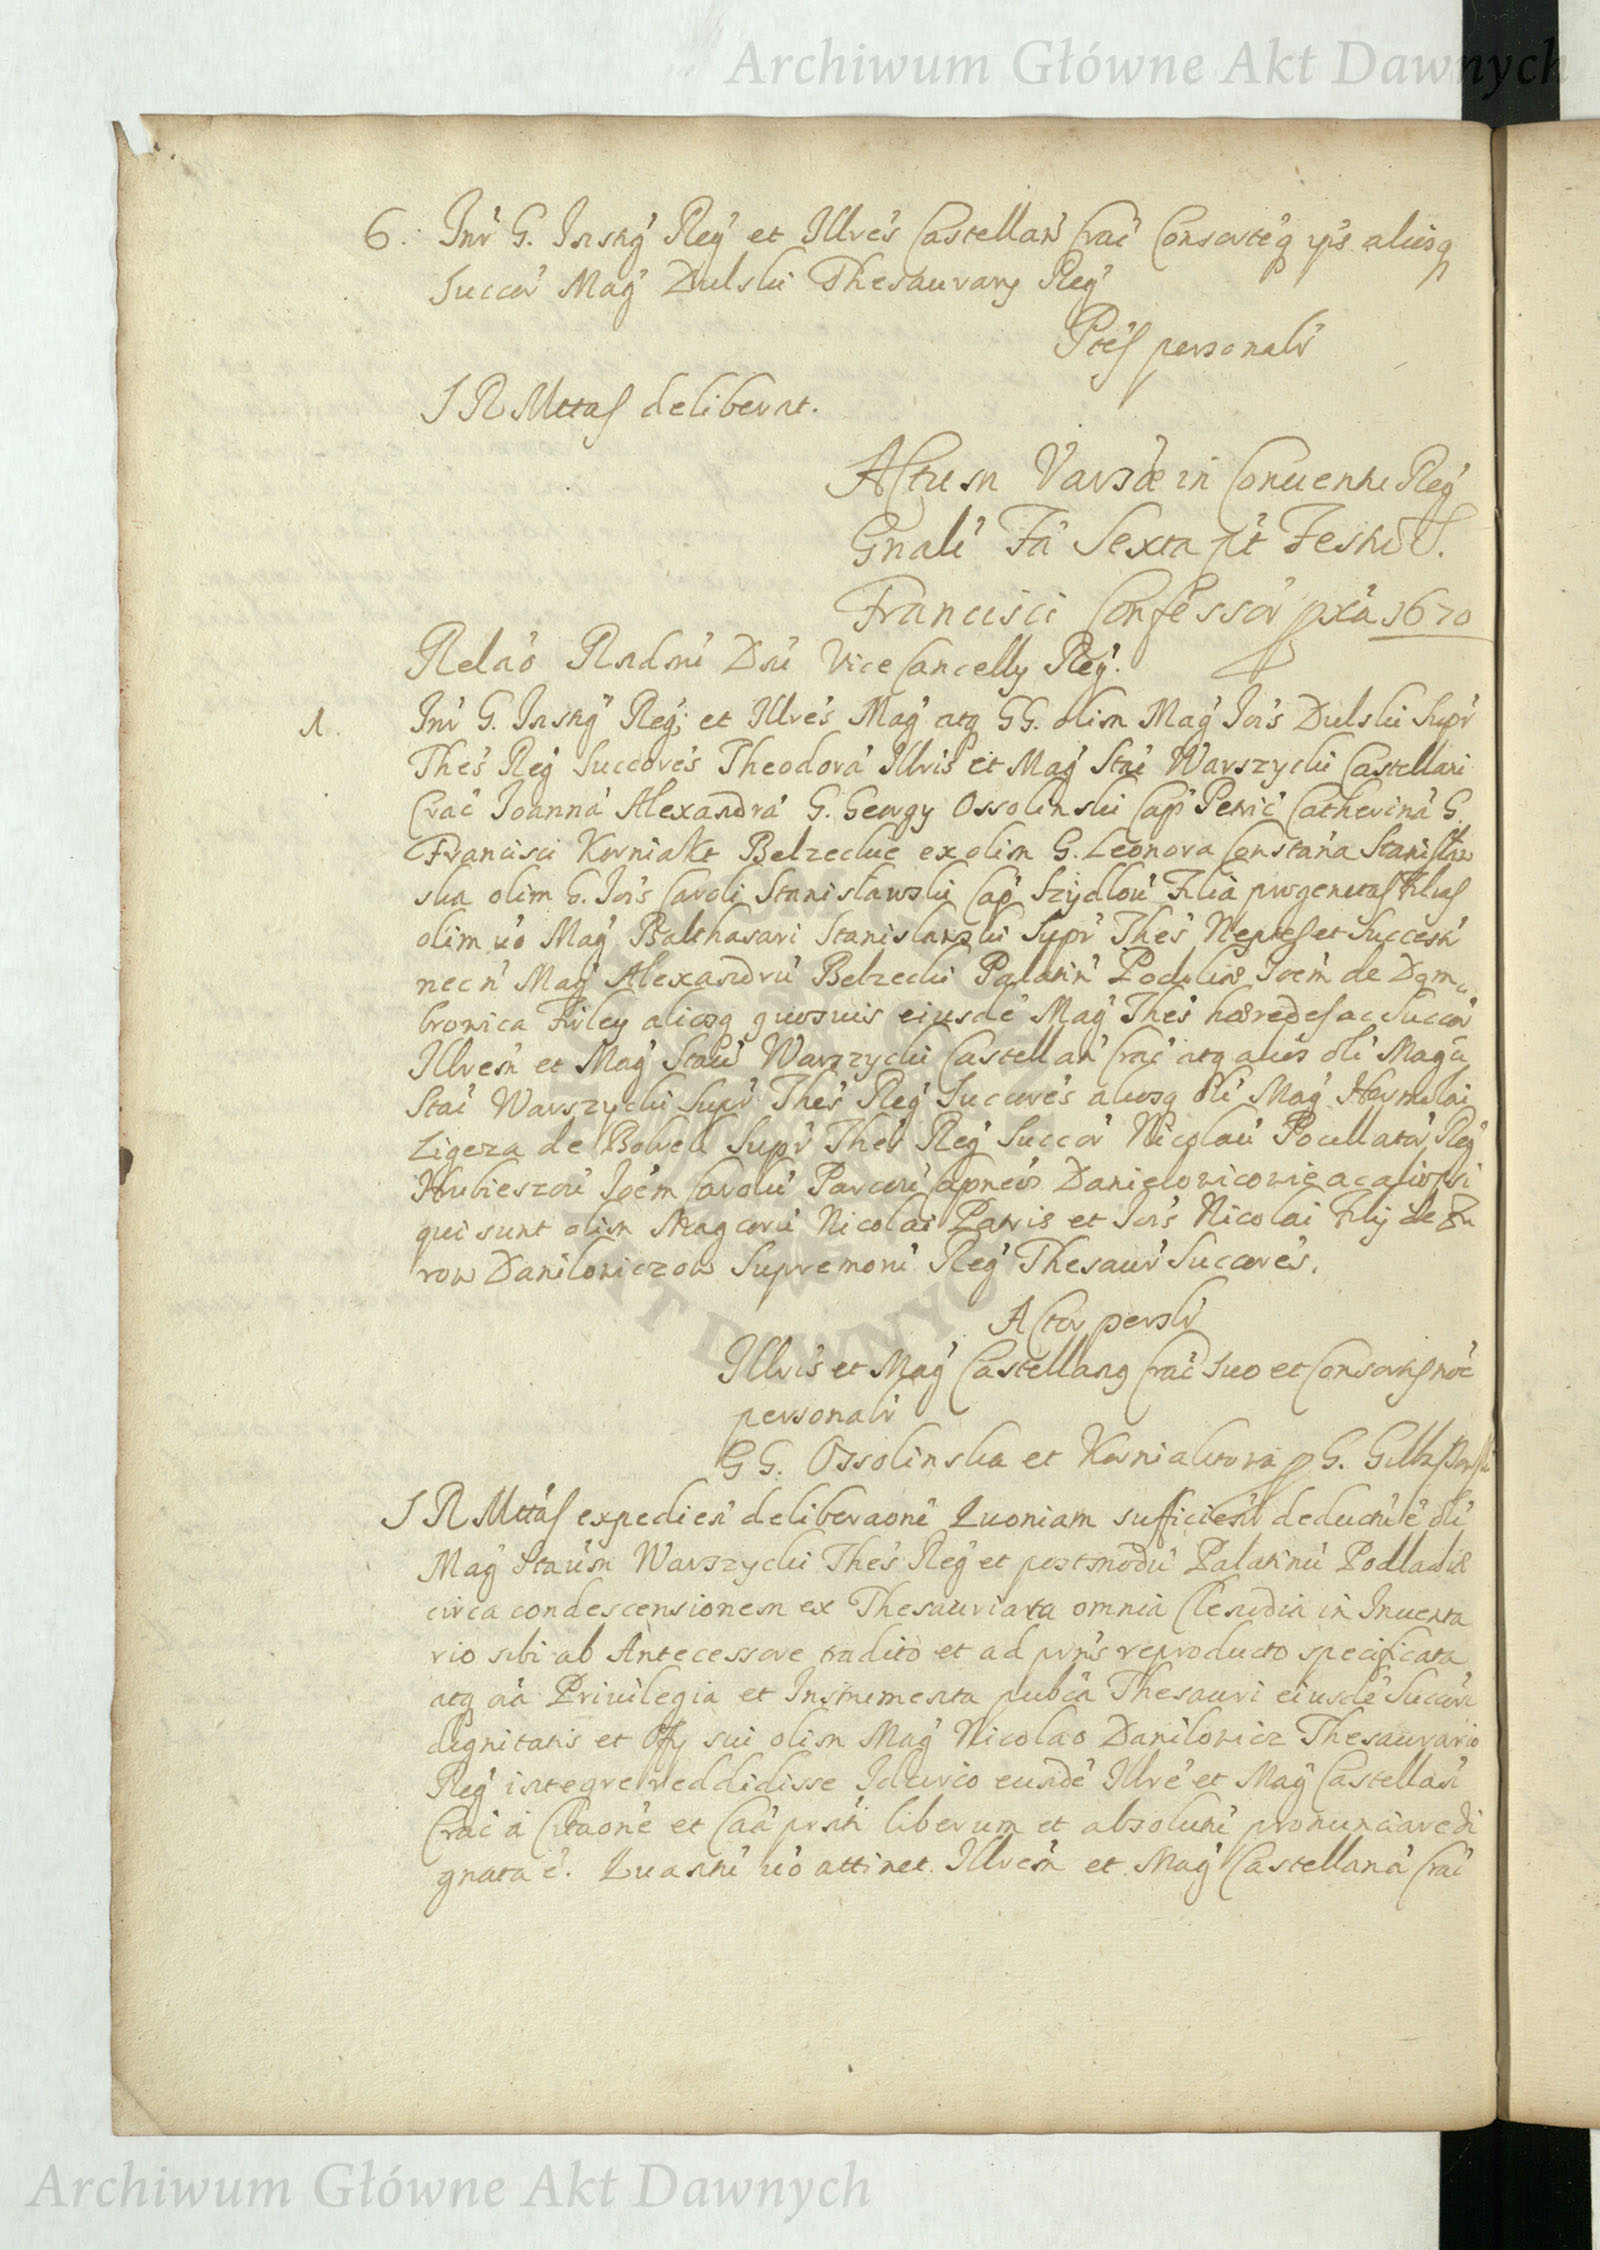 Archiwum Główne Akt Dawnych
6. Inr G. Instig Reg et Illres Castellan Crac Consorteq ips aliisq
Succor Mag Dulski Thesaurary Reg
Ptes personalr
S R Mttas deliberat.
Actum Varsae in Conuentu Reg
Gnali Fa Sexta pt Festu S.
Francisci Confessor pxa 1670
Relao Rndmi Dni Vice Cancelly Reg.
1. Inr G. Instig Reg, et Illres Mag atq GG. olim Mag Jois Dulski Supr
Thes Reg Succores Theodora Illris et Mag Stai Warszycki Castellani
Crac Joanna Alexandra G. Georgy Ossolinski Cap Petric Catherina G.
Francisci Korniakt Belzeckie ex olim G. Leonora Constana Stanisław
ska olim G. Jois Caroli Stanisławski Cap Szydlou Filia progenitas Filias
olim uo Mag Balthasari Stanislawski Supr Thes Neptes et Succestr
nec n Mag Alexandru Belzecki Palatin Podoliae Joem de Dąm
browica Firley aliosq quosuis eiusde Mag Thes haeredes ac Succor
Illrem et Mag Stau Warszycki Castellan Crac atq alios oli Mag
Stai Warszycki Supr Thes Reg Succores aliosq oli Mag Hermolai
Ligeza de Bobek Supr Thes Reg Succor Nicolau Pocillator Reg
Hrubieszou Joem Carolu Parcou Capneos Danielowicowie ac alios si
qui sunt olim Magcoru Nicolai Patris et Jois Nicolai Filij de Zu
row Daniłowiczow Supremoru Reg Thesaur Succores.
Actor persli
Illris et Mag Castellang Crac suo et Consortis noe
personalr
GG. Ossolinska et Korniaktowa p G.
S R Mttas expedien deliberaone Quoniam sufficientr deductu e oli
Mag Staum Warszycki Thes Reg et postmodu Palatinu Podlachiae
circa condescensionem ex Thesauriatu omnia Clenodia in Inuenta
rio sibi ab Antecessore tradito et ad prns reproducto specificata
atq oia Priuilegia et Instrumenta pubca Thesauri eiusde Succori
dignitatis et Offy sui olim Mag Nicolao Daniłowicz Thesaurario
Reg integre reddidisse Idcirco eunde Illre et Mag Castellan
Crac a Citaone et Caa prsnti liberum et absolutu pronunciare di
gnata e. Quantu uo attinet Illrem et Mag Castellana Crac
Archiwum Główne Akt Dawnych